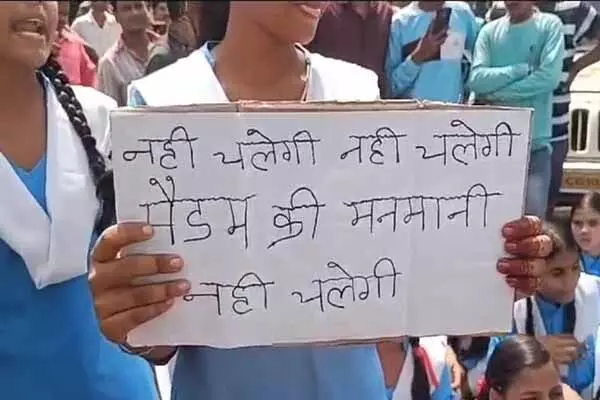 नही चलेगी नही चलेगी
मैडम की मनमानी
नही चलेगी